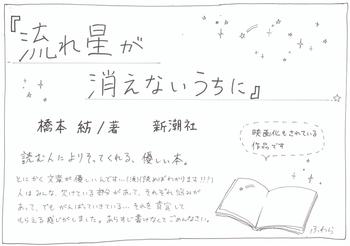 『流れ星が
消えないうちに』
橋本 紡/著 新潮社
映画化もされている
作品です
読む人によりそってくれる、優しい本。
とにかく文章が優しいんです…!(涙)(読めばわかります!!!)
人はみんな欠けている部分があって、それぞれ悩みが
あって、でもがんばっていきている…それを肯定して
もらえる感じがしました。あらすじ書けなくてごめんなさい。
ふわら